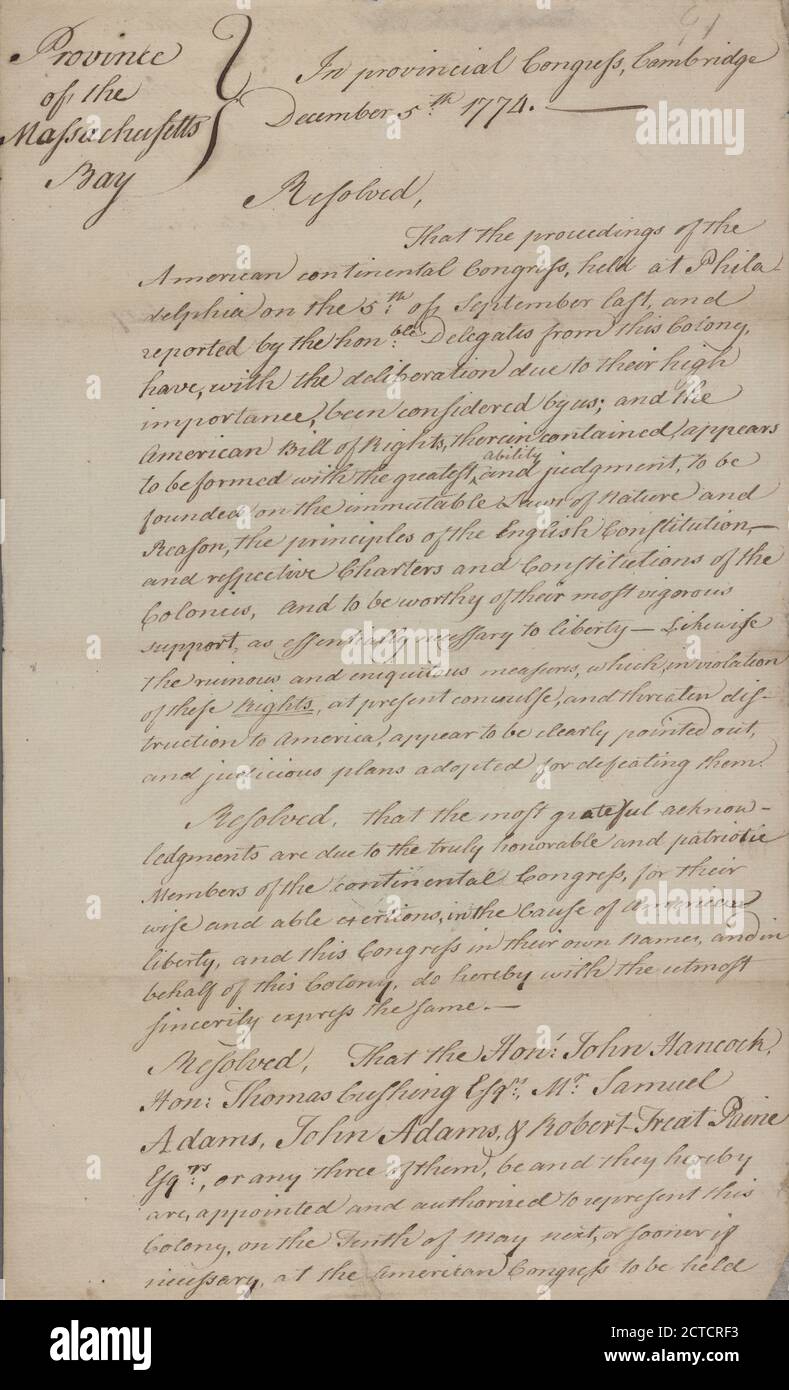 91
Province
of the
Massachusetts
Bay
In provincial Congress, Cambridge
December 5.th 1774.
Resolved,
That the proceedings of the
American continental Congress, held at Phila-
delphia on the 5.th of September last, and
reported by the hon.ble Delegates from this Colony,
have, with the deliberation due to their high
importance, been considered by us; and the
American Bill of Rights, therein contained, appears
to be formed with the greatest ^ability and judgment, to be
founded on the immutable Laws of Nature and
Reason, the principles of the English Constitution,—
and respective Charters and Constitutions of the
Colonies, and to be worthy of their most vigorous
support, as essentially necessary to liberty — Likewise
the ruinous and iniquitous measures, which, in violation
of these Rights, at present convulse, and threaten dis-
truction to America, appear to be clearly pointed out,
and judicious plans adopted for defeating them.
Resolved, that the most grateful acknow-
ledgments are due to the truly honorable and patriotic
Members of the continental Congress, for their
wise and able exertions, in the Cause of American
liberty, and this Congress in their own names, and in
behalf of this Colony, do hereby with the utmost
sincerity express the same.—
Resolved, That the Hon: John Hancock,
Hon: Thomas Cushing Esqrs, Mr. Samuel
Adams, John Adams, & Robert-Treat Paine
Esq.rs, or any three of them, be and they hereby
are, appointed and authorized to represent this
Colony, on the Tenth of May next, or sooner if
necessary, at the American Congress to be held
alamy
Image ID: 2CTCRF3
www.alamy.com